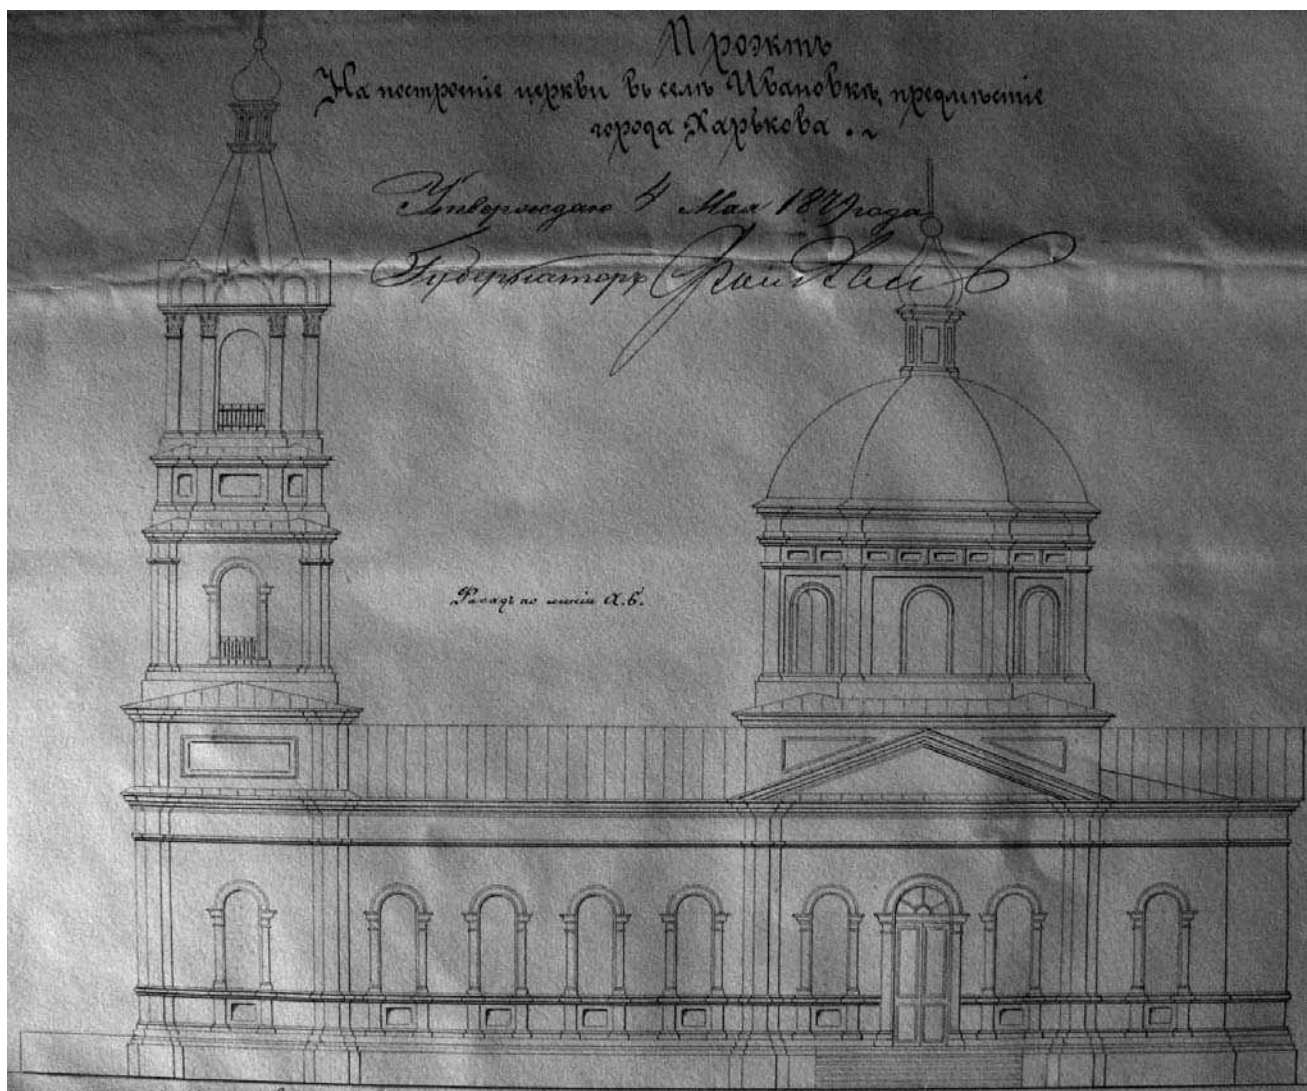 Проэктъ
На построеніе церкви въ селѣ Ивановкѣ, предмѣстіе
города Харькова
Утверждаю 4 Мая 1879 года
Губернаторъ
Фасадъ по линіи А.Б.